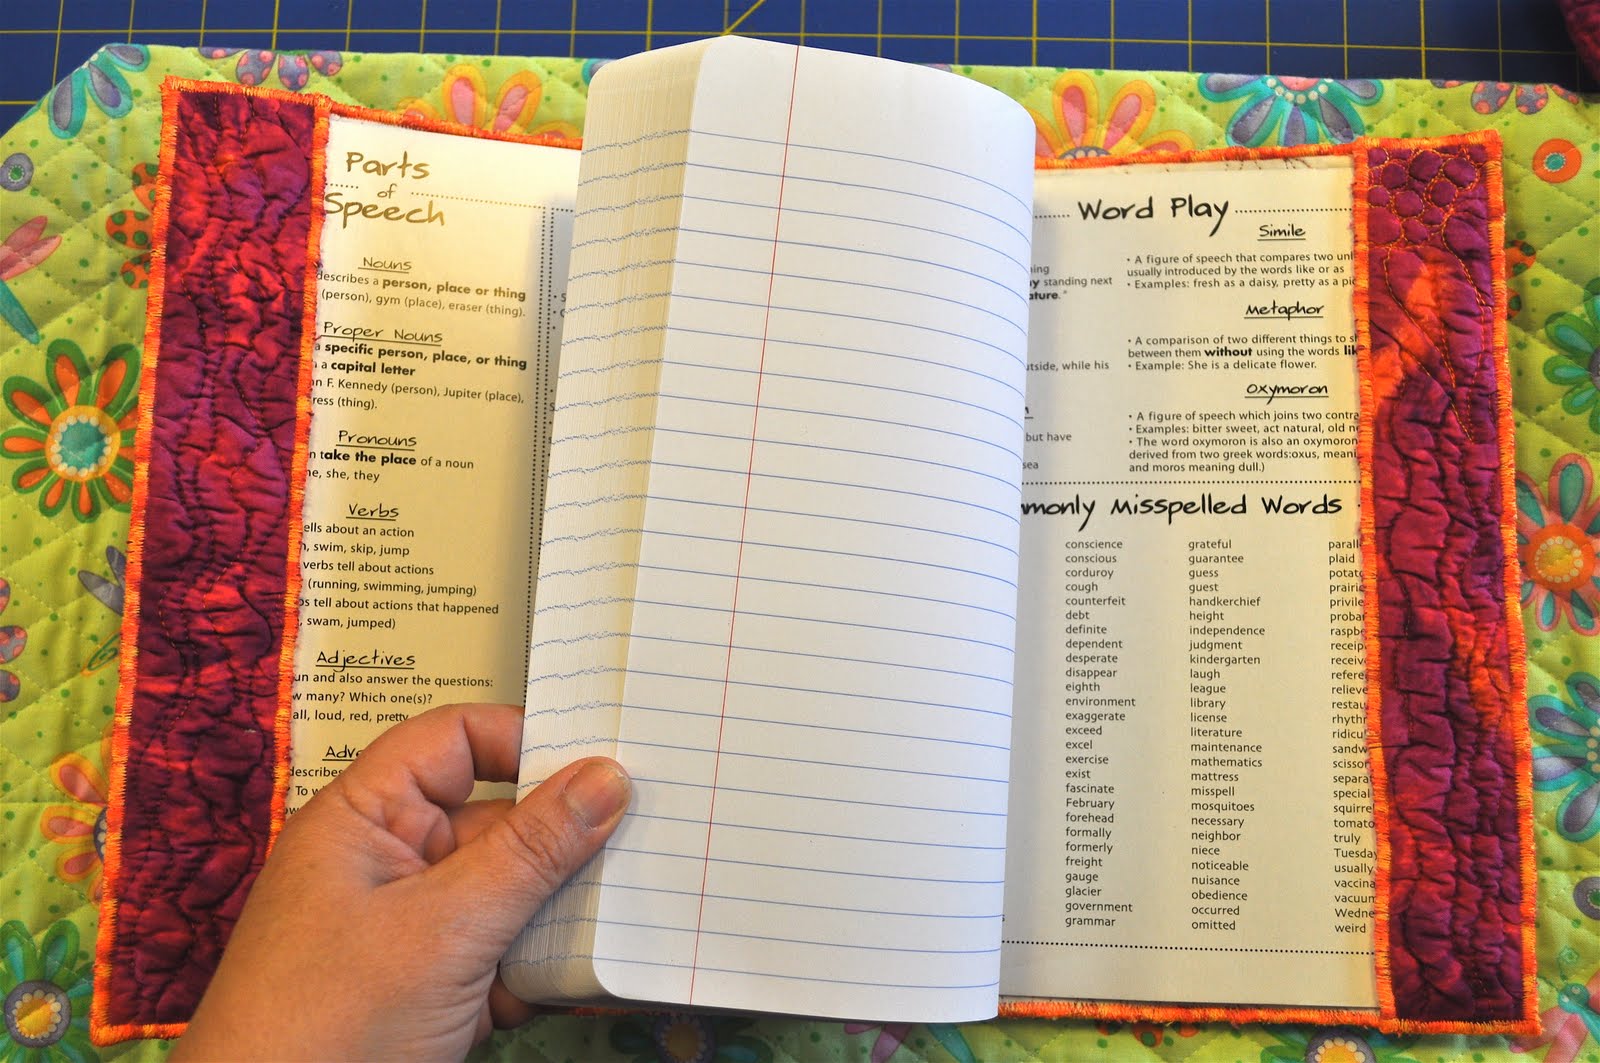 Parts
of
Speech
Nouns
describes a person, place or thing
(person), gym (place), eraser (thing).
Proper Nouns
a specific person, place, or thing
a capital letter
F. Kennedy (person), Jupiter (place),
(thing).
Pronouns
take the place of a noun
she, they
Verbs
about an action
swim, skip, jump
verbs tell about actions
(running, swimming, jumping)
tell about actions that happened
swam, jumped)
Adjectives
and also answer the questions:
many? Which one(s)?
loud, red, pretty
describes
To
Word Play
standing next
outside, while his
but have
sea
Simile
• A figure of speech that compares two
usually introduced by the words like or as
• Examples: fresh as a daisy, pretty as a
Metaphor
• A comparison of two different things to
between them without using the words
• Example: She is a delicate flower.
Oxymoron
• A figure of speech which joins two
• Examples: bitter sweet, act natural, old
• The word oxymoron is also an oxymoron
derived from two greek words:oxus,
and moros meaning dull.)
Misspelled Words
conscience
conscious
corduroy
cough
counterfeit
debt
definite
dependent
desperate
disappear
eighth
environment
exaggerate
exceed
excel
exercise
exist
fascinate
February
forehead
formally
formerly
freight
gauge
glacier
government
grammar
grateful
guarantee
guess
guest
handkerchief
height
independence
judgment
kindergarten
laugh
league
library
license
literature
maintenance
mathematics
mattress
misspell
mosquitoes
necessary
neighbor
niece
noticeable
nuisance
obedience
occurred
omitted
plaid
truly
Tuesday
usually
weird